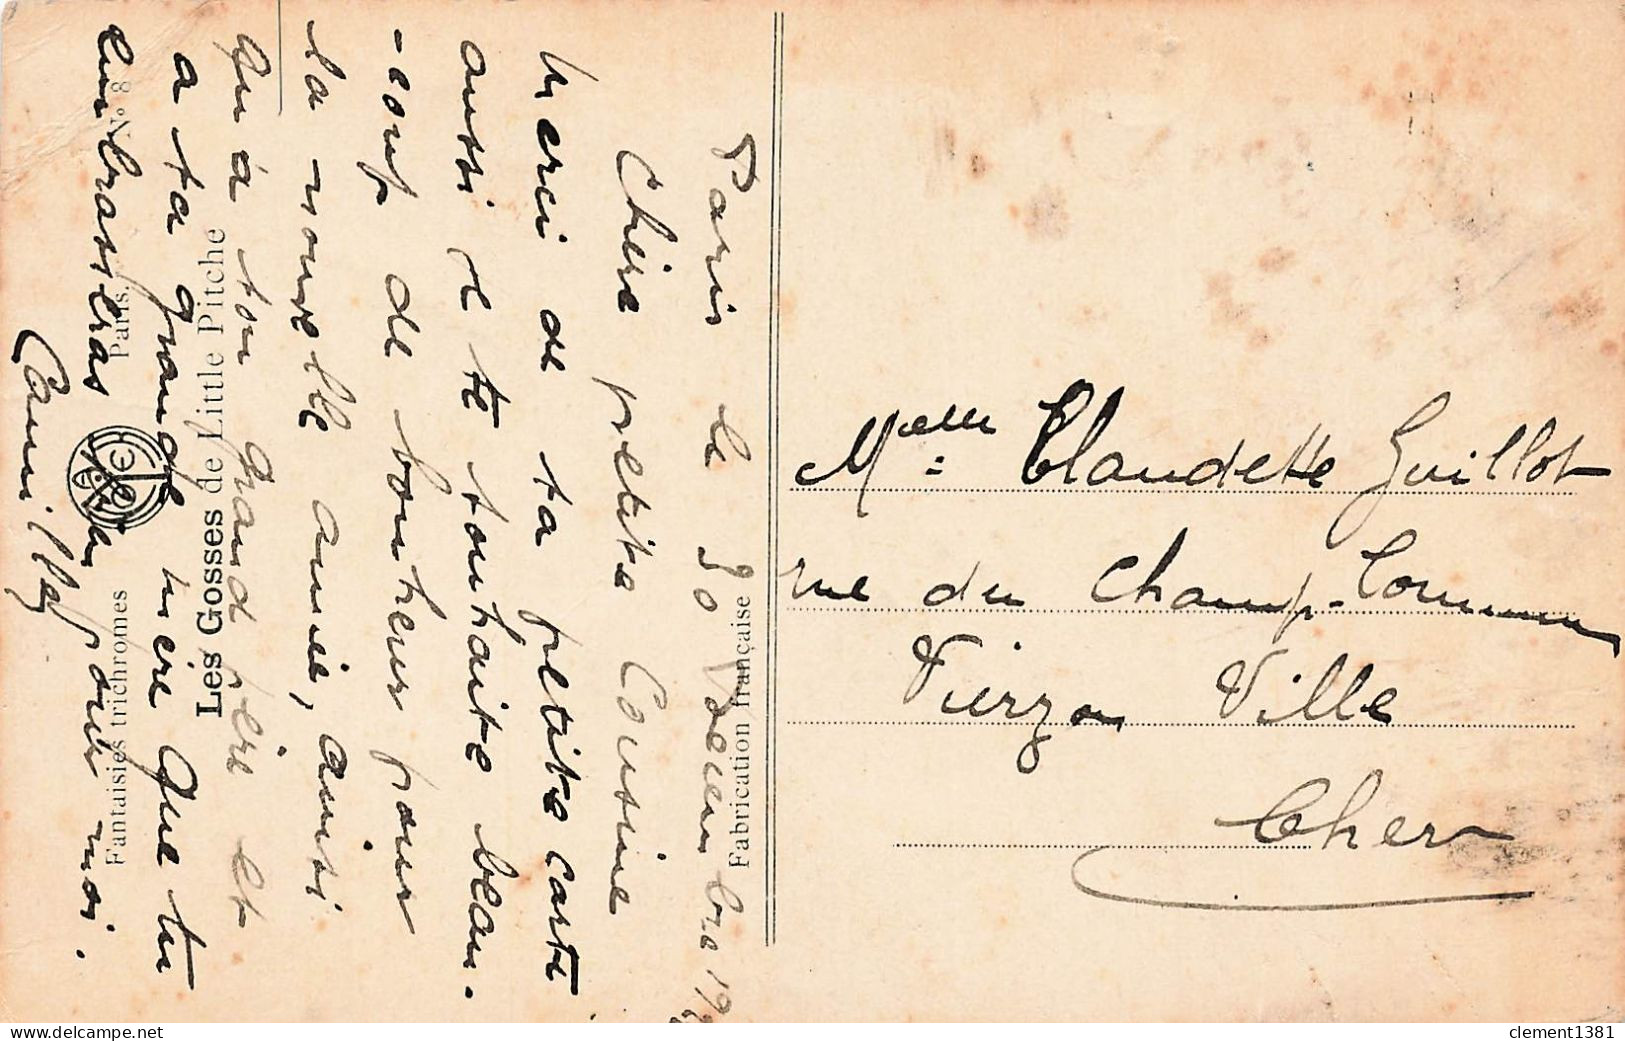 Paris le 30 Décembre 19
Chère petite Cousine
Merci de ta petite carte
aussi je te souhaite beau-
-coup de bonheur pour
la nouvelle année, ainsi
qu'à ton grand père et
a ta grande mère que tu
embrasseras bien pour moi.
Camille
Fabrication française
Les Gosses de Little Pitche
Fantaisies trichromes
Paris. N° 8
Melle Claudette Guillot
rue du Champ-Commun
Vierzon Ville
Cher
delcampe.net
clement1381